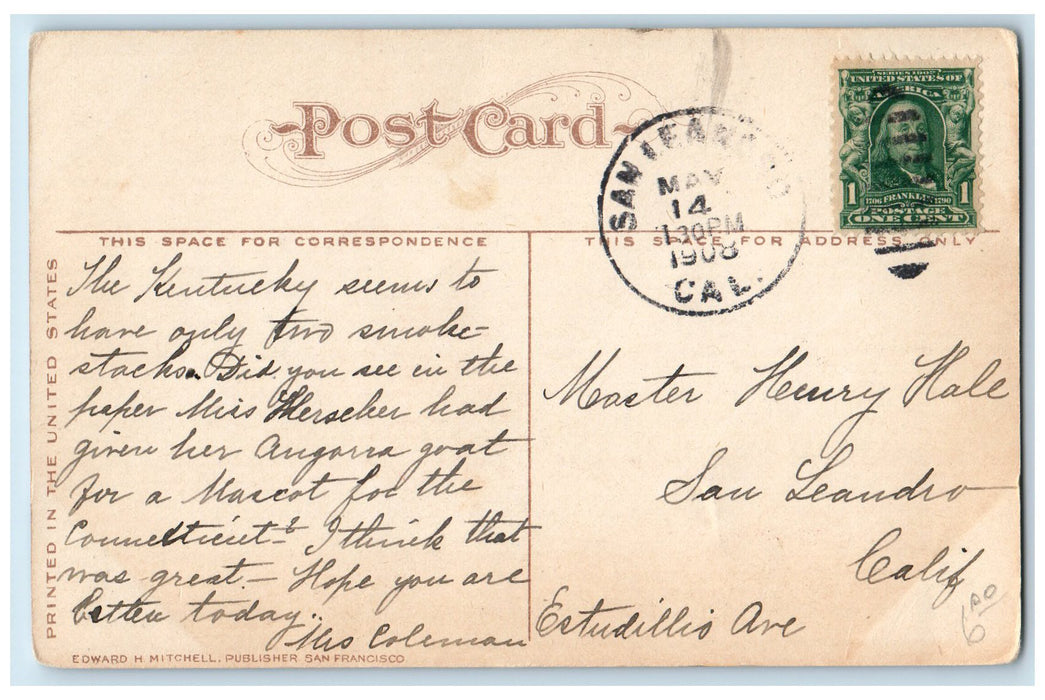 Post Card
SAN LEANDRO
MAY
14
130PM
1908
CAL.
SERIES 1902
UNITED STATES OF
AMERICA
1 1706 FRANKLIN 1790 1
POSTAGE
ONE CENT
THIS SPACE FOR CORRESPONDENCE
THIS SPACE FOR ADDRESS ONLY.
PRINTED IN THE UNITED STATES
The Kentucky seems to
have only two smoke-
stacks. Did you see in the
paper Miss Herscher had
given her Angorra goat
for a Mascot for the
Connecticut? I think that
was great — Hope you are
better today..
Mrs Coleman
Master Henry Hale
San Leandro
Calif
Estudillio Ave
6.00
EDWARD H. MITCHELL, PUBLISHER SAN FRANCISCO